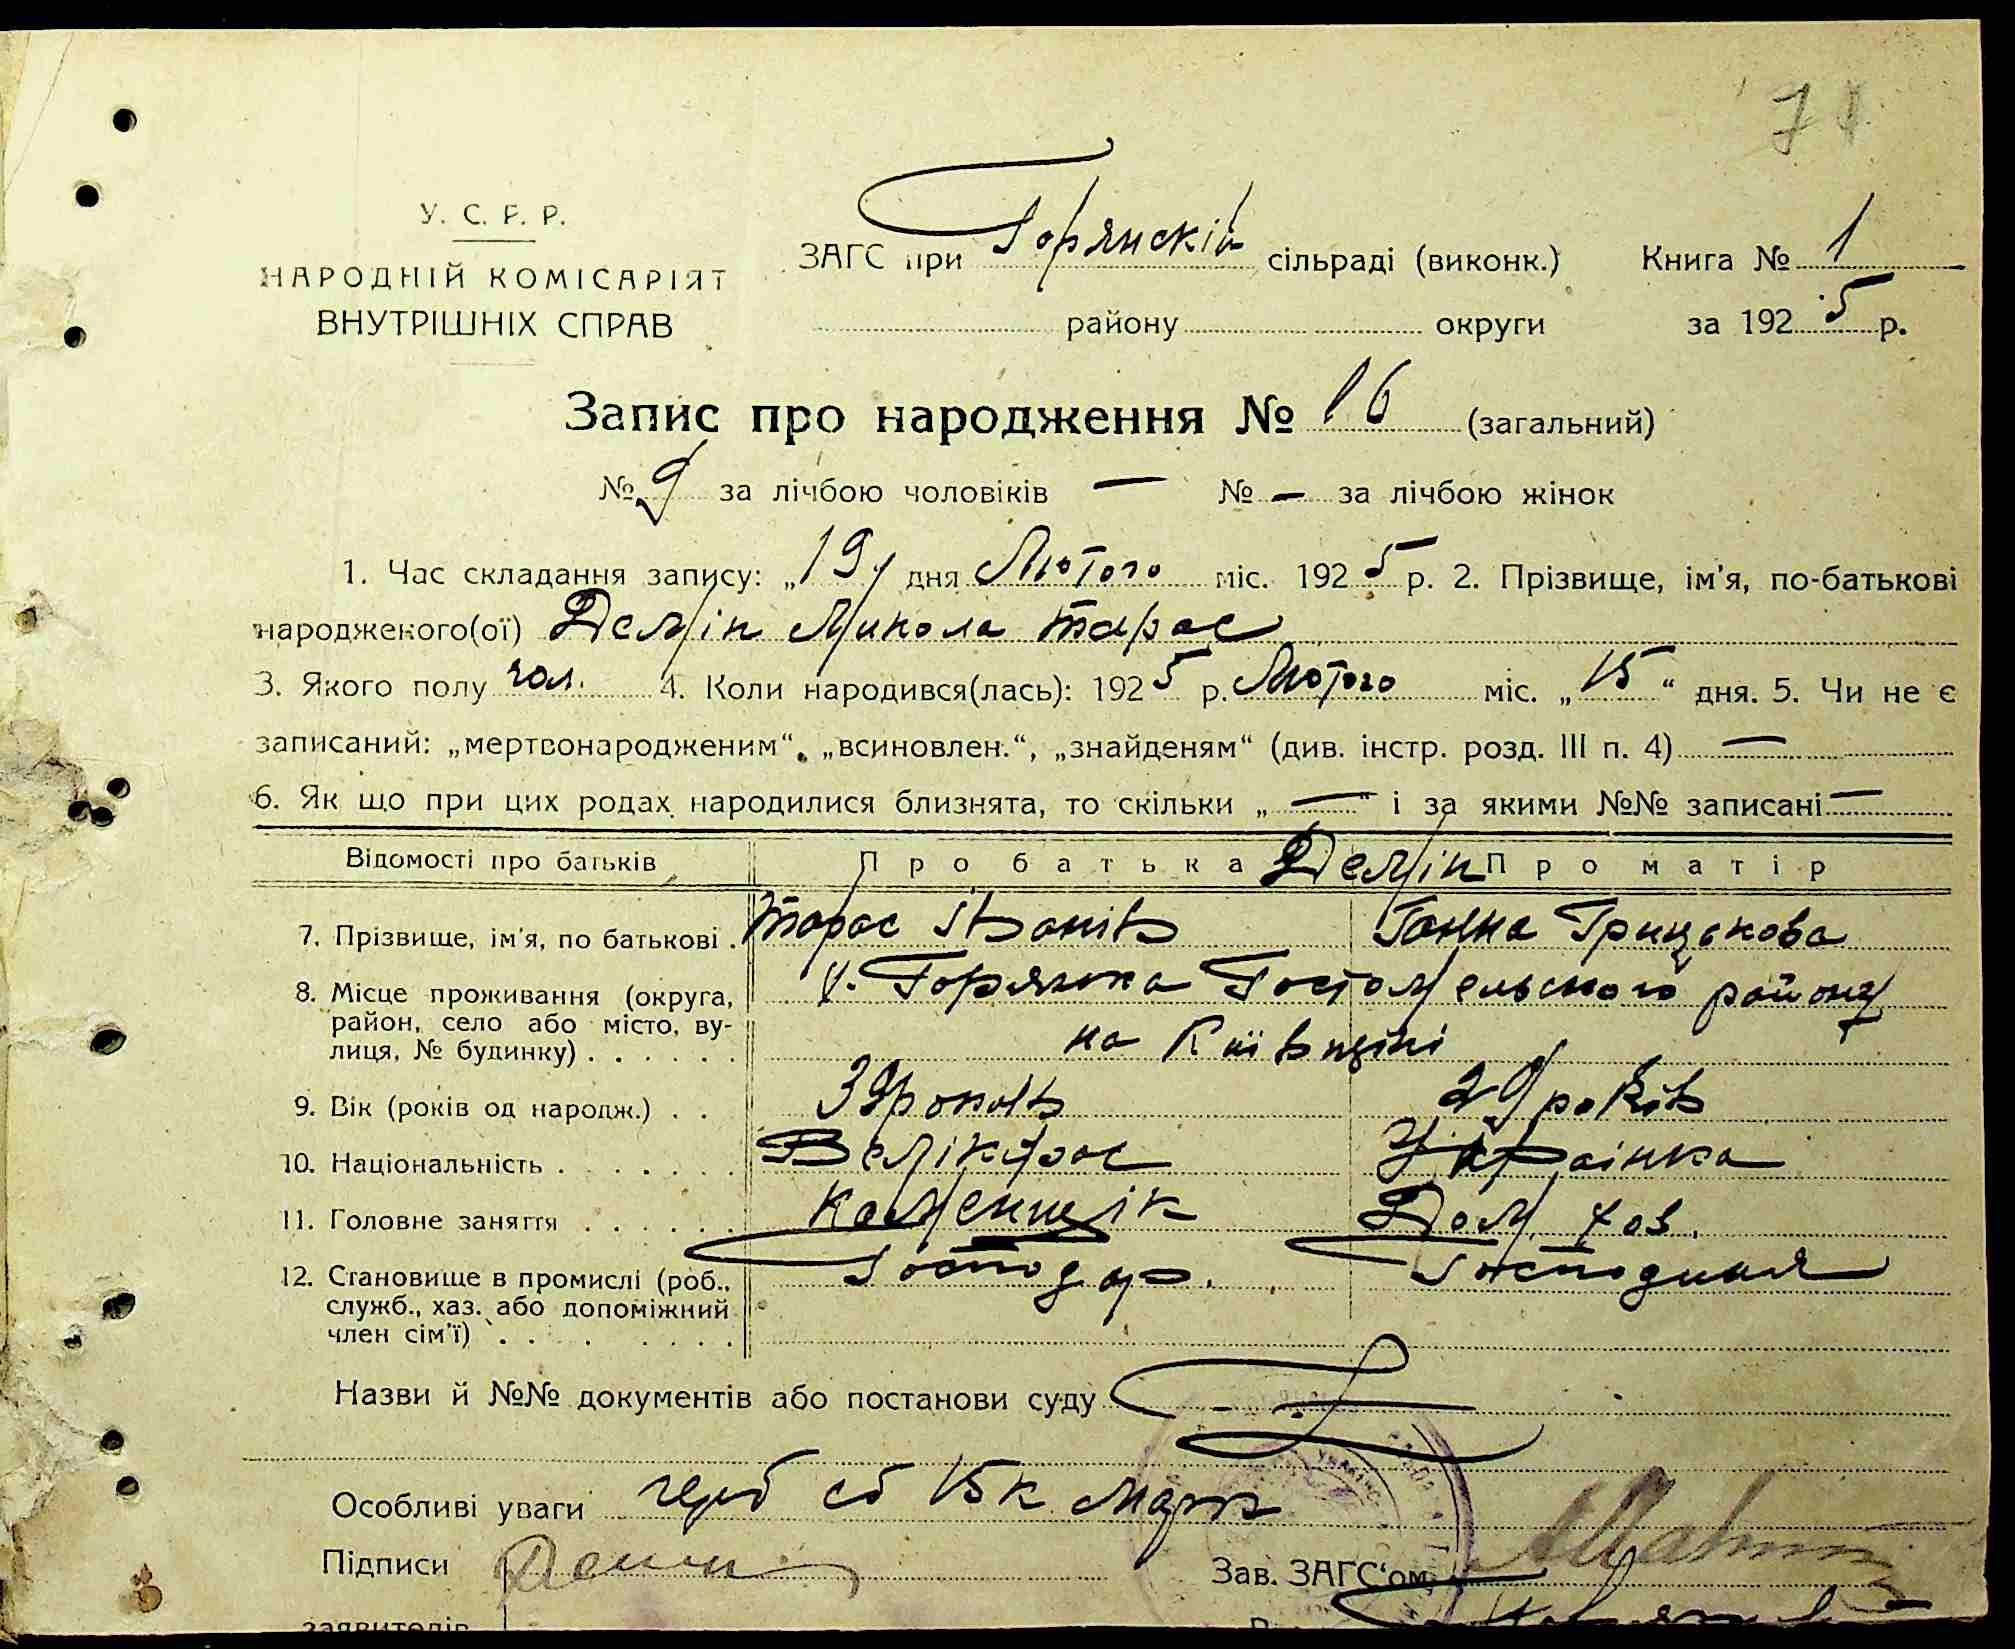 71
У. С. Р. Р.
НАРОДНІЙ КОМІСАРІЯТ
ВНУТРІШНІХ СПРАВ
ЗАГС при Горянскій сільраді (виконк.) Книга № 1
району округи за 1925 р.
Запис про народження № 16 (загальний)
№ 9 за лічбою чоловіків — № — за лічбою жінок
1. Час складання запису: „19" дня Лютого міс. 1925 р. 2. Прізвище, ім'я, по-батькові
народженого(ої) Демін Микола Тарас
3. Якого полу чол. 4. Коли народився(лась): 1925 р. Лютого міс. „15“ дня. 5. Чи не є
записаний: „мертвонародженим“, „всиновлен.“, „знайденям“ (див. інстр. розд. III п. 4) —
6. Як що при цих родах народилися близнята, то скільки „—“ і за якими №№ записані —
Відомості про батьків Про батька Демін Про матір
7. Прізвище, ім'я, по батькові . Тарас Іванів Ганна Грицькова
8. Місце проживання (округа, район, село або місто, вулиця, № будинку) . . . . . . Горянка Гостомельского району
на Київщіні
9. Вік (років од народж.) . . 39 років 29 років
10. Національність . . . . . . . Велікорос Українка
11. Головне заняття . . . . . . Каменщік Дом. хов.
12. Становище в промислі (роб., служб., хаз. або допоміжний член сім'ї) . . . . . . . Господар. Господиня
Назви й №№ документів або постанови суду
Особливі уваги герб сб 15к марк
Підписи Демин Зав. ЗАГС'ом
заявителів